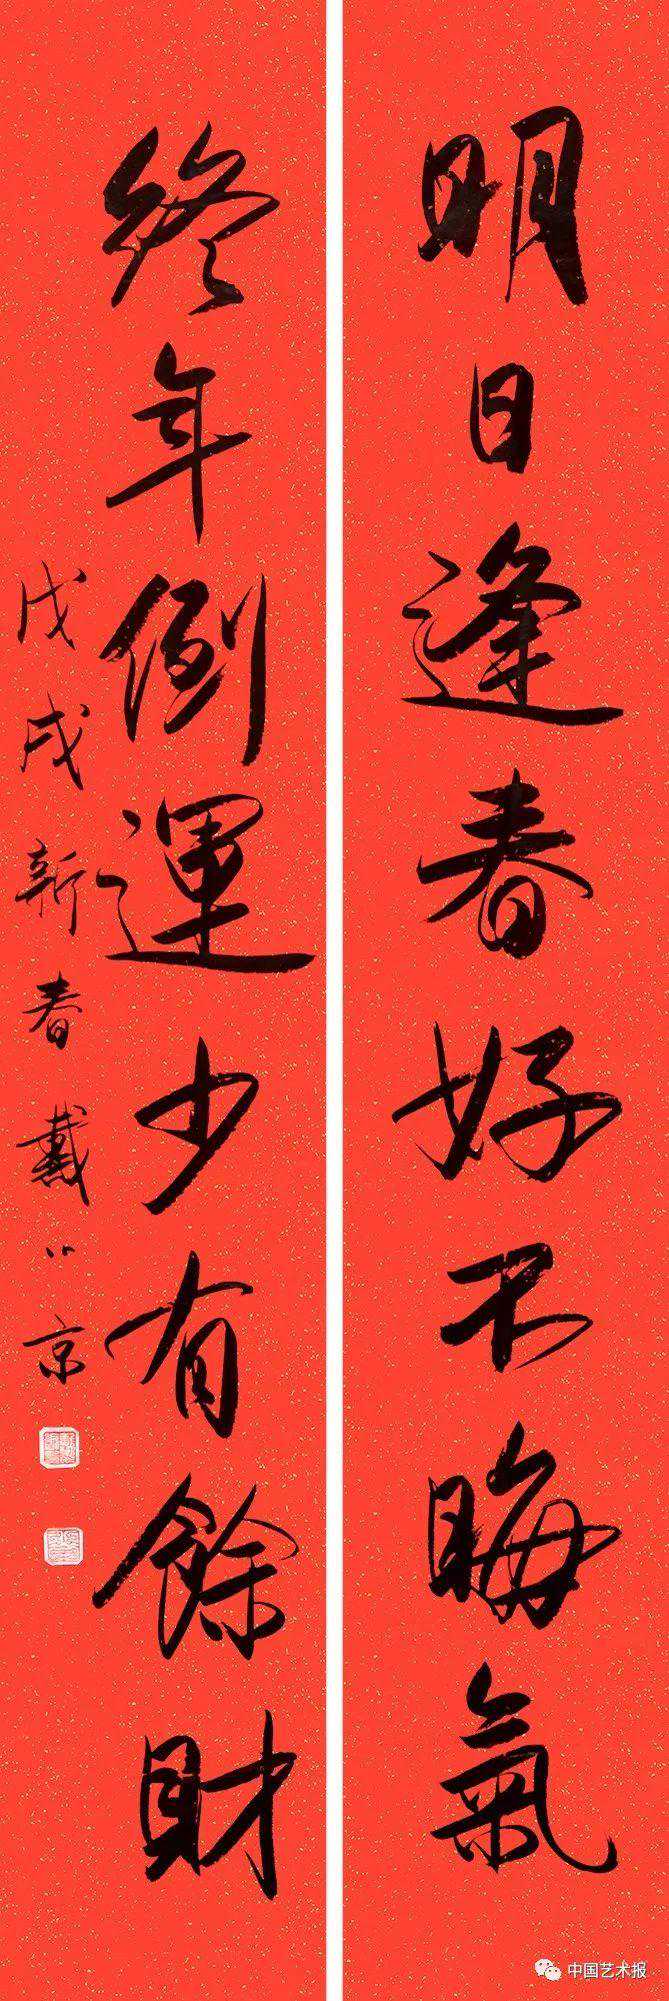 明日逢春好不晦氣
終年倒運少有餘財
戊戌新春戴小京
中国艺术报